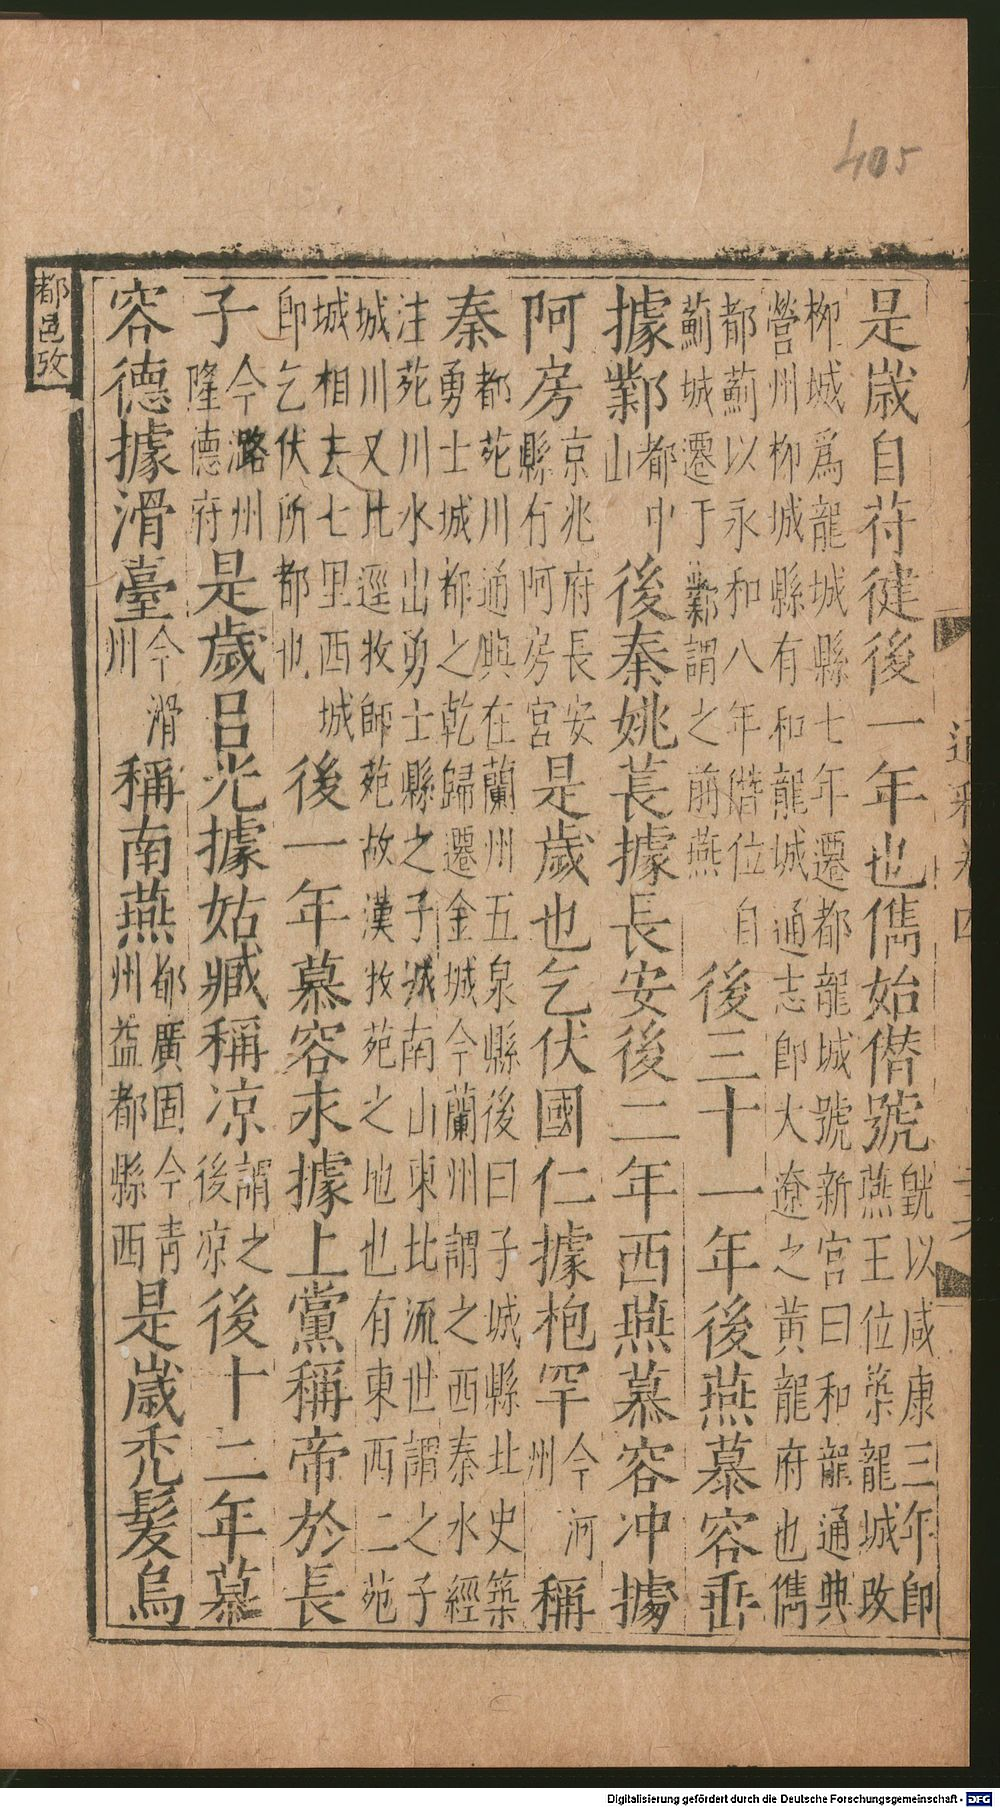 405
都邑攷
通釋卷四
是歲自苻健後一年也儁始僭號皝以咸康三年即
燕王位築龍城改
柳城爲龍城縣七年遷都龍城號新宮曰和龍通典
營州柳城縣有和龍城通志即大遼之黃龍府也儁
都薊以永和八年僭位自
薊城遷于鄴謂之前燕
後三十一年後燕慕容垂
據鄴都中
山
後秦姚萇據長安後二年西燕慕容冲據
阿房京兆府長安
縣有阿房宮
是歲也乞伏國仁據枹罕今河
州
稱
秦都苑川通與在蘭州五泉縣後曰子城縣北史築
勇士城都之乾歸遷金城今蘭州謂之西秦水經
注苑川水出勇士縣之子城南山東北流世謂之子
城川又北逕牧師苑故漢牧苑之地也有東西二苑
城相去七里西城
即乞伏所都也
後一年慕容永據上黨稱帝於長
子今潞州
隆德府
是歲呂光據姑臧稱凉謂之
後凉
後十二年慕
容德據滑臺今滑
州
稱南燕都廣固今青
州益都縣西
是歲禿髮烏
Digitalisierung gefördert durch die Deutsche Forschungsgemeinschaft - DFG